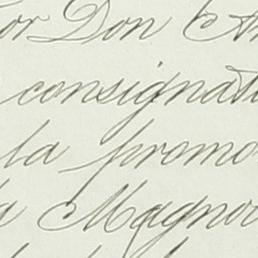 or Don A
consignat
la promo
a Magno